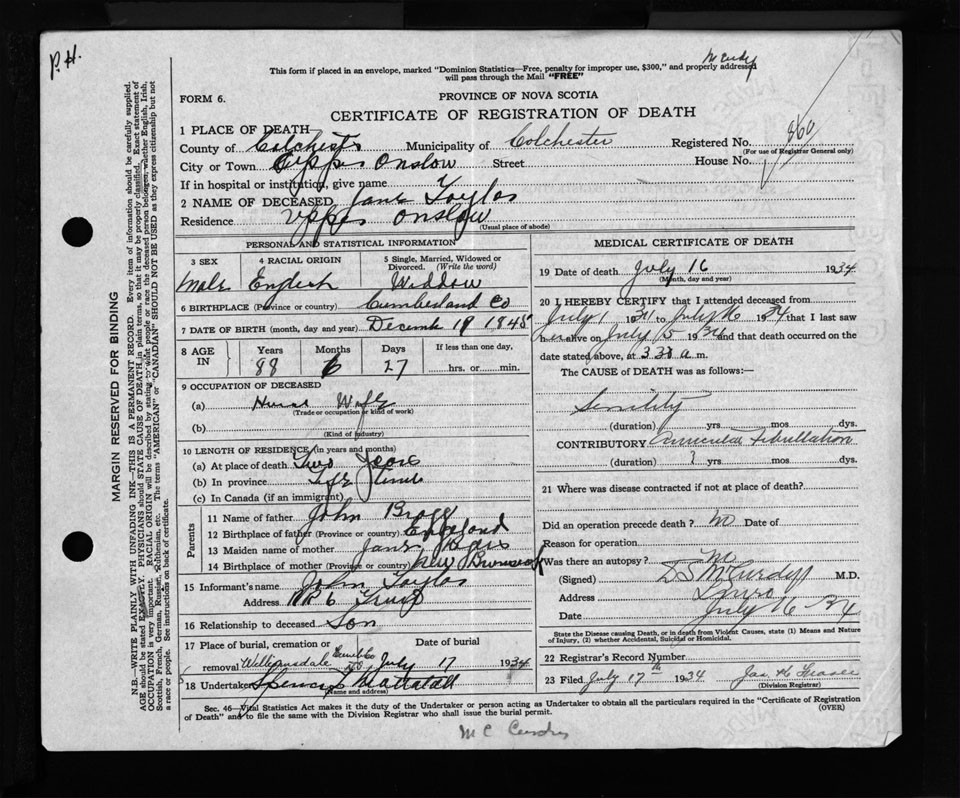 P.H.
McCurdy
This form if placed in an envelope, marked "Dominion Statistics—Free, penalty for improper use, $300," and properly addressed
will pass through the Mail "FREE"
FORM 6.
PROVINCE OF NOVA SCOTIA
CERTIFICATE OF REGISTRATION OF DEATH
1 PLACE OF DEATH
County of Colchester Municipality of Colchester Registered No. 860
(For use of Registrar General only)
City or Town Upper Onslow Street House No.
If in hospital or institution, give name
2 NAME OF DECEASED Jane Taylor
Residence Upper Onslow
(Usual place of abode)
PERSONAL AND STATISTICAL INFORMATION
3 SEX 4 RACIAL ORIGIN 5 Single, Married, Widowed or
Divorced. (Write the word)
English Widdow
6 BIRTHPLACE (Province or country) Cumberland Co
7 DATE OF BIRTH (month, day and year) 1845
8 AGE IN Years Months Days If less than one day,
88 6 27 hrs. or min.
9 OCCUPATION OF DECEASED
(a) House Wife
(Trade or occupation or kind of work)
(b)
(Kind of industry)
10 LENGTH OF RESIDENCE (in years and months)
(a) At place of death Two
(b) In province Life Time
(c) In Canada (if an immigrant)
Parents
11 Name of father John
12 Birthplace of father (Province or country) England
13 Maiden name of mother Jane
14 Birthplace of mother (Province or country) New Brunswick
15 Informant's name John Taylor
Address RR 6 Truro
16 Relationship to deceased Son
17 Place of burial, cremation or removal Date of burial
Williamsdale July 17 1934
18 Undertaker Spencer Mattatall
(Name and address)
MEDICAL CERTIFICATE OF DEATH
19 Date of death July 16 1934
(Month, day and year)
20 I HEREBY CERTIFY that I attended deceased from
July 1 1934 to July 16 1934 that I last saw
her alive on July 15 1934 and that death occurred on the
date stated above, at 3.30 a.m.
The CAUSE of DEATH was as follows:—
Senility
(duration) yrs mos dys.
CONTRIBUTORY Auricular Fibrillation
(duration) ? yrs mos dys.
21 Where was disease contracted if not at place of death?
Did an operation precede death? No Date of
Reason for operation
Was there an autopsy? No
(Signed) D S McCurdy M.D.
Address Truro
Date July 16 - 34
State the Disease causing Death, or in death from Violent Causes, state (1) Means and Nature
of Injury, (2) whether Accidental, Suicidal or Homicidal.
22 Registrar's Record Number
23 Filed July 17th 1934
(Division Registrar)
Sec. 46—Vital Statistics Act makes it the duty of the Undertaker or person acting as Undertaker to obtain all the particulars required in the "Certificate of Registration
of Death" and to file the same with the Division Registrar who shall issue the burial permit.
(OVER)
MARGIN RESERVED FOR BINDING
N.B.—WRITE PLAINLY WITH UNFADING INK—THIS IS A PERMANENT RECORD. Every item of information should be carefully supplied.
AGE should be stated EXACTLY. PHYSICIANS should STATE CAUSE OF DEATH in plain terms, so that it may be properly classified. Exact statement of
OCCUPATION is very important. RACIAL ORIGIN will be described by stating to what people or race the deceased person belongs, whether English, Irish,
Scottish, French, German, Russian, Ruthenian, etc. The terms "AMERICAN" or "CANADIAN" SHOULD NOT BE USED as they express citizenship but not
a race or people. See instructions on back of certificate.